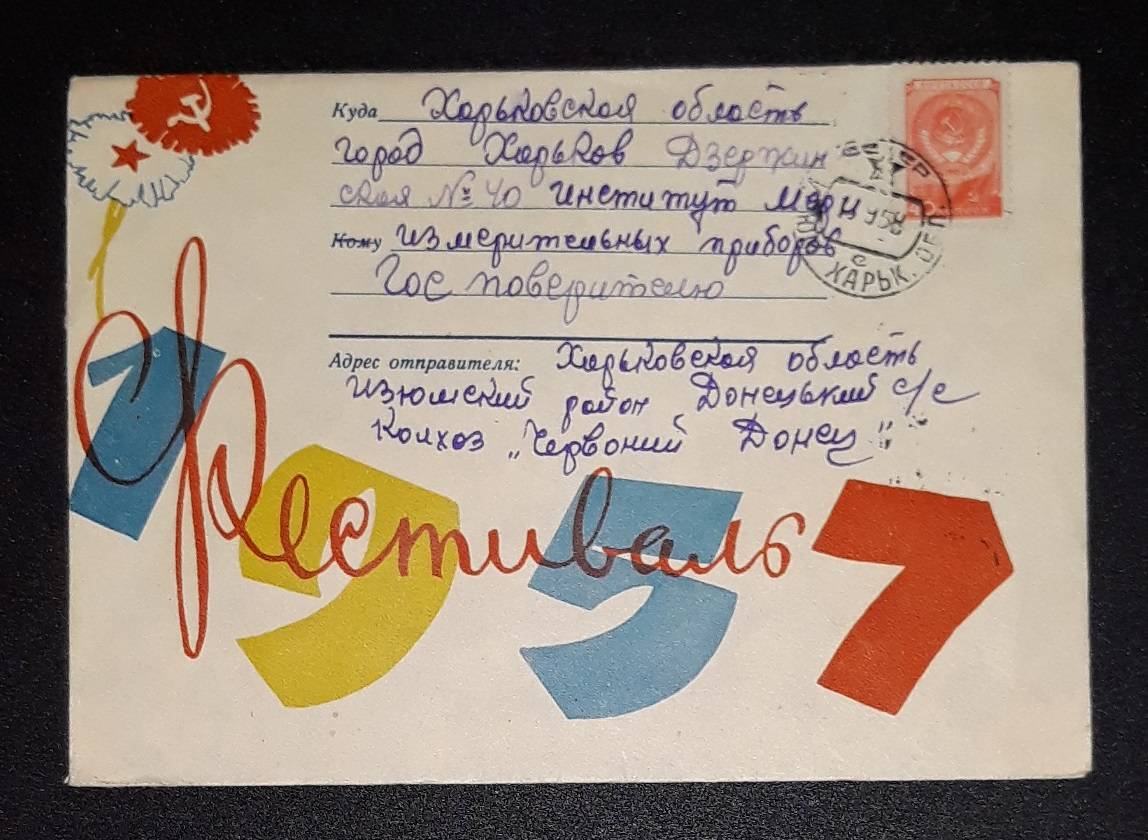 Куда Харьковская область
город Харьков Дзержин
ская № 40 институт мери
Кому измерительных приборов
Гос поверителю
Адрес отправителя: Харьковская область
Изюмский район Донецький с/с
Колхоз „Червоний Донец"
ХАРЬК. ОБЛ.
Фестиваль
1957